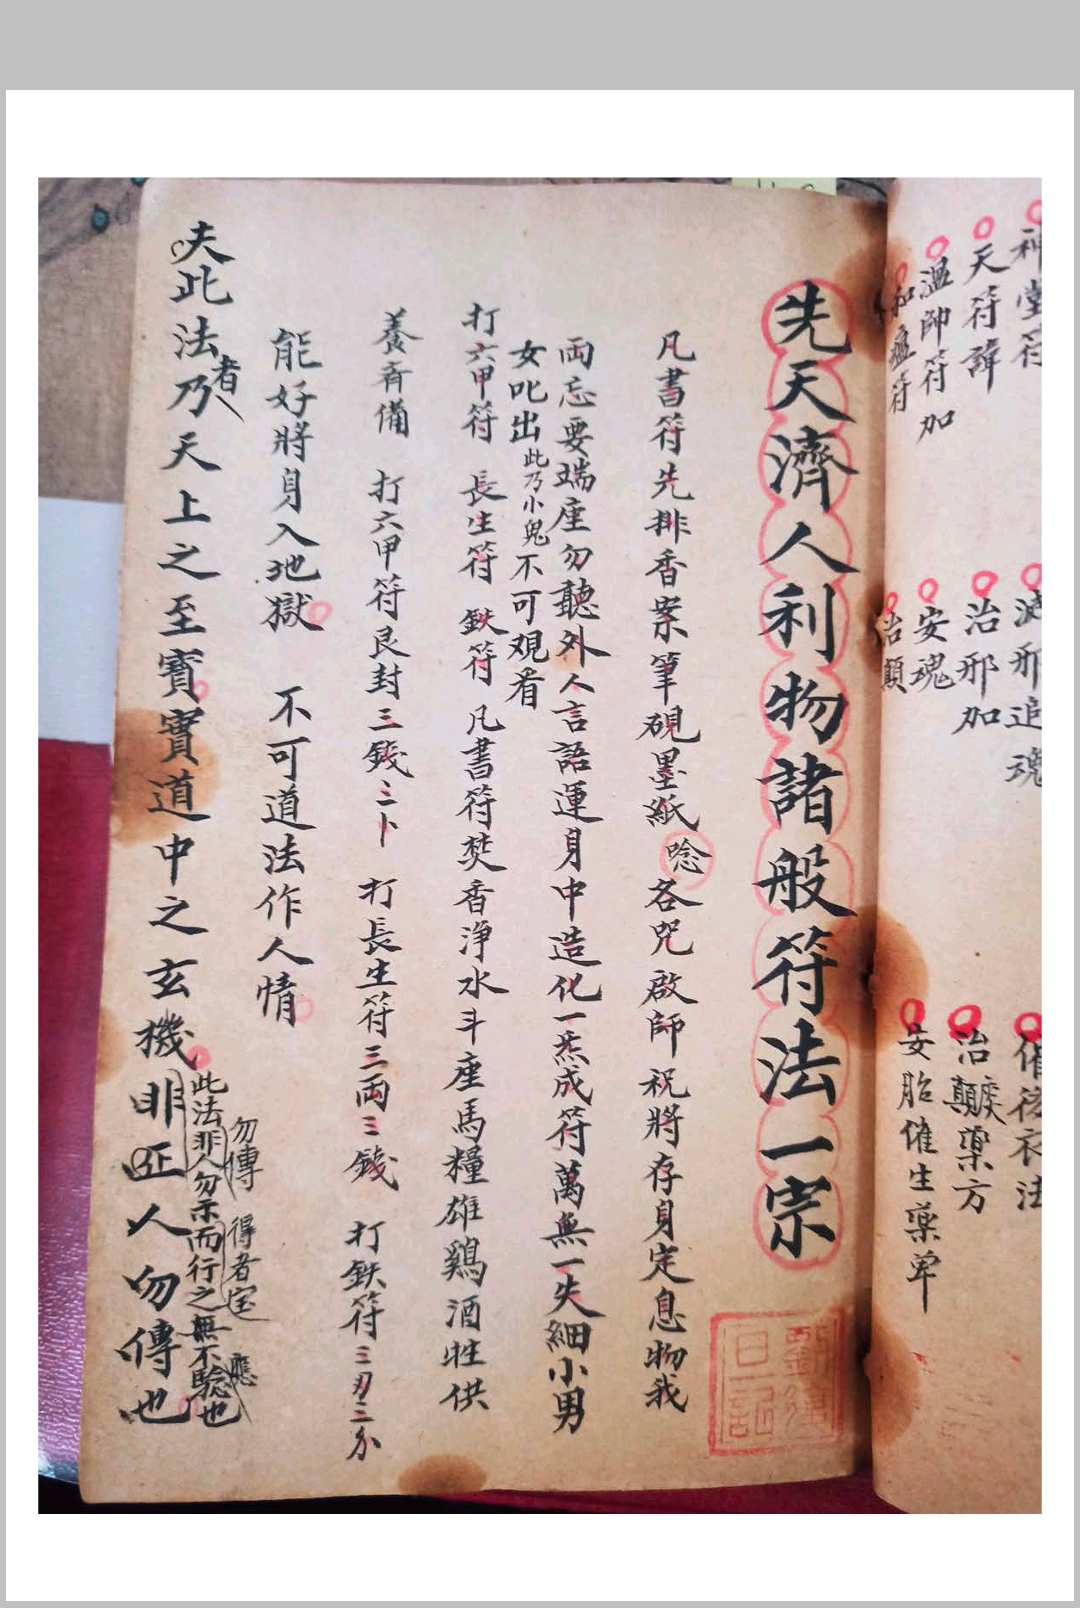 神堂符
天符諱
溫帥符加
和瘟符
邪追魂
治邪加
安魂
治顛
衣法
治顛疾藥方
安胎催生藥单
先天濟人利物諸般符法一宗
凡書符先排香案筆硯墨紙唸各咒啟師祝將存身定息物我
両忘要端座勿聽外人言語運身中造化一炁成符萬無一失細小男
女叱出此乃小鬼不可观看
打六甲符 長生符 鉄符 凡書符焚香淨水斗座馬糧雄鷄酒牲供
養齐備 打六甲符艮封三錢三卜 打長生符三両三錢 打鉄符三刃二分
能好將身入地獄 不可道法作人情
勿傳 得者宝
此法非人勿示而行之無不驗也
應
夫此法者乃天上之至寶實道中之玄機非正人勿傳也